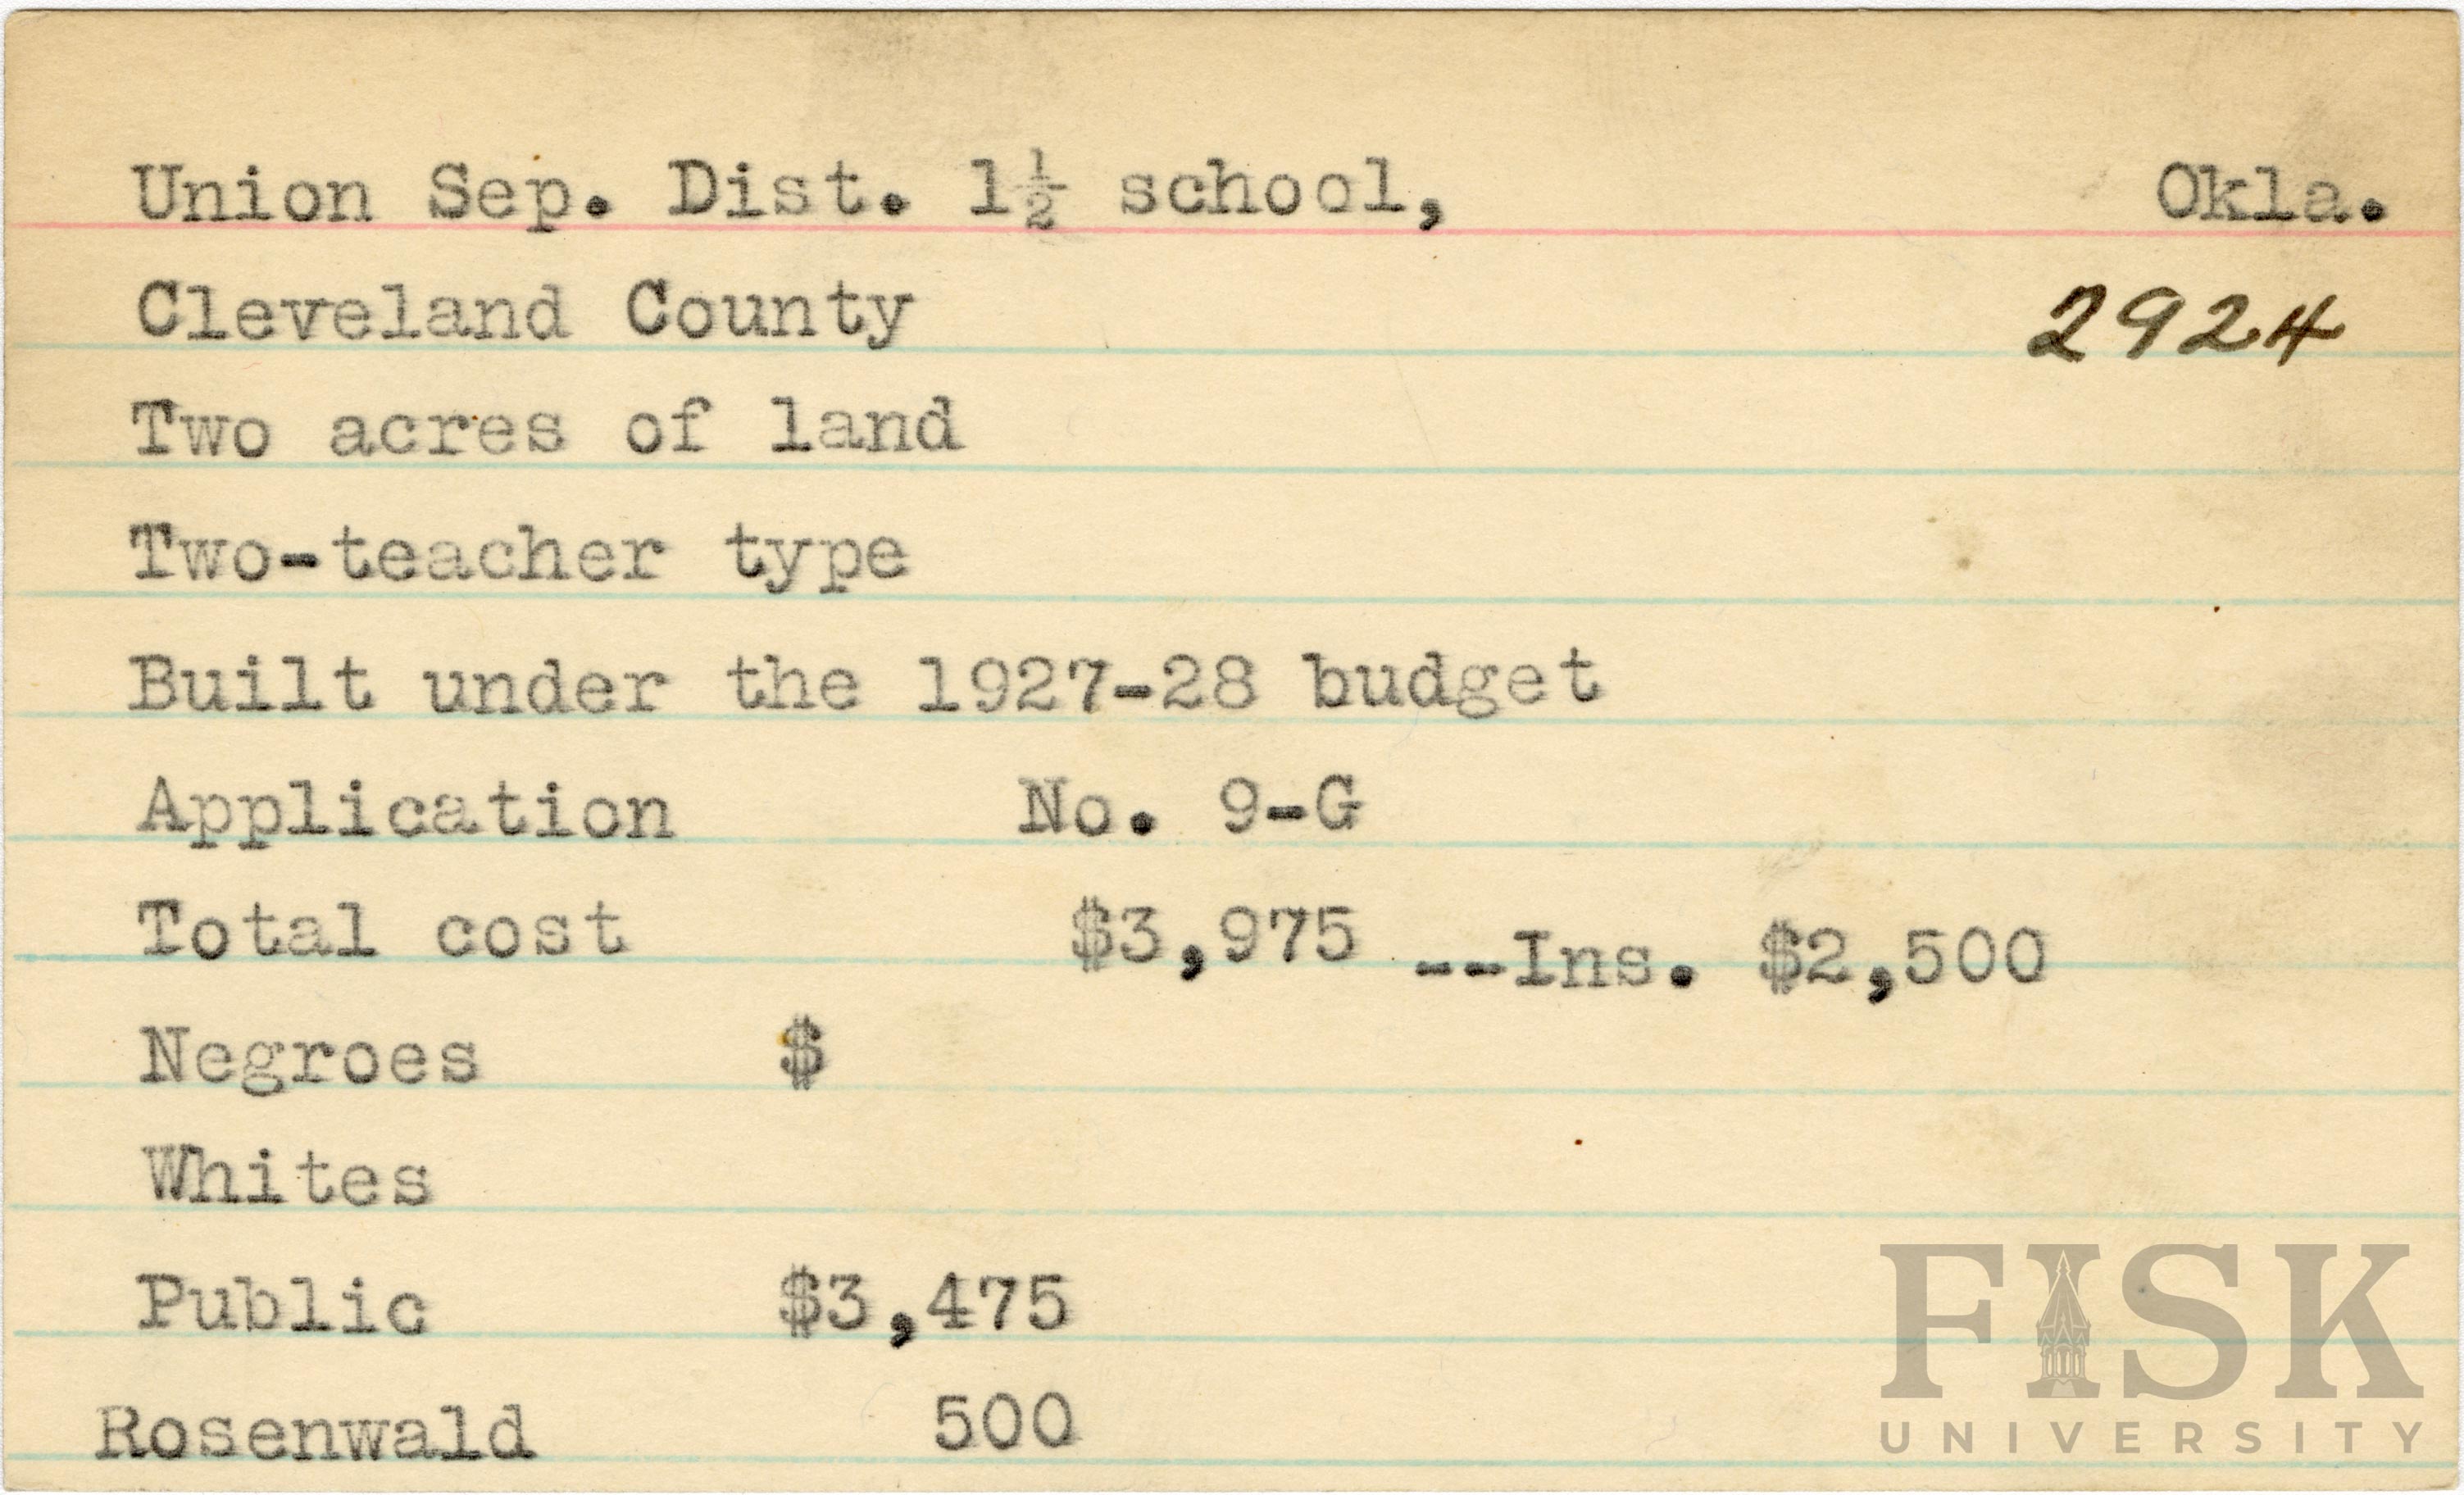 Union Sep. Dist. 1½ school, Okla.
Cleveland County 2924
Two acres of land
Two-teacher type
Built under the 1927-28 budget
Application No. 9-G
Total cost $3,975 --Ins. $2,500
Negroes $
Whites
Public $3,475
Rosenwald 500
FISK
UNIVERSITY